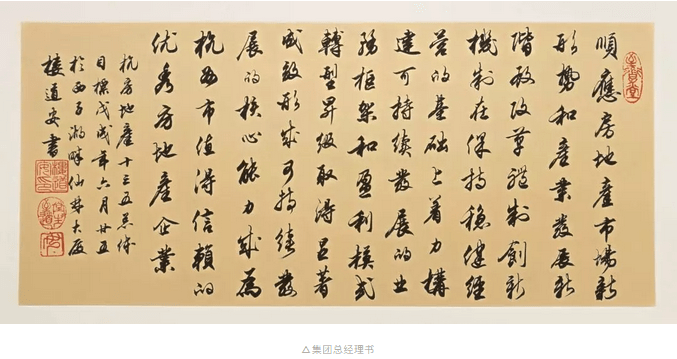 順應房地產市場新
形勢和產業發展新
階段改革體制創新
機制在保持穩健經
营的基础上着力構
建可持续發展的业
務框架和盈利模式
轉型昇级取得显著
成效形成可持续發
展的核心能力成為
杭州市值得信賴的
优秀房地產企業
杭房地產十三五总体
目標戊戌年六月廿五
於西子湖畔仙林大厦
樓道安書
△集团总经理书